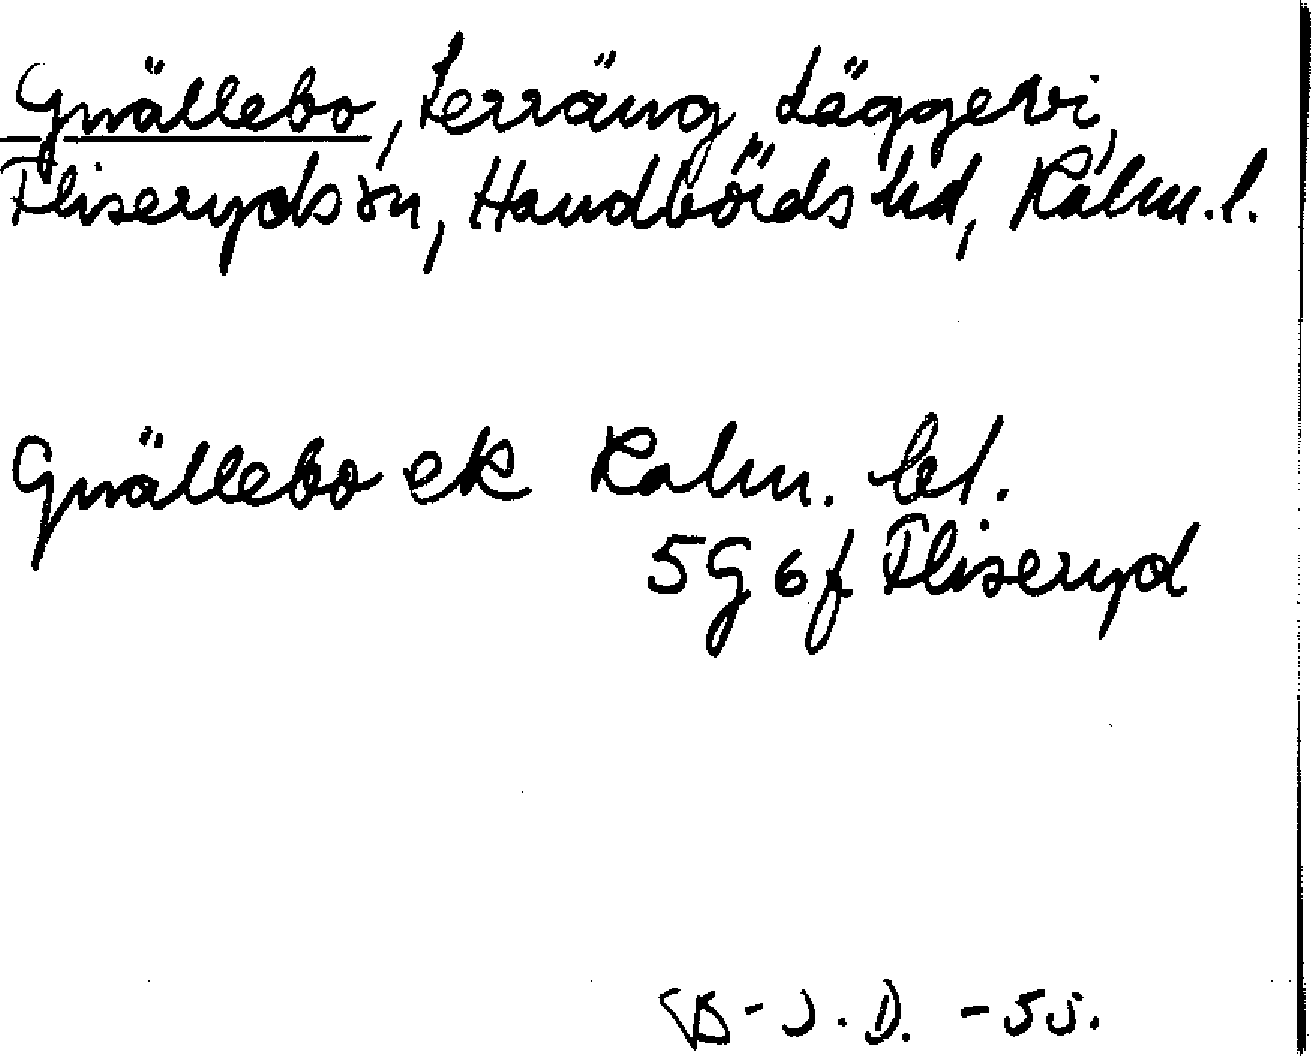 Gnällebo, Terräng, Läggevi,
Fliseryds sn, Handbörds hd, Kalm. l.
Gnällebo ek Kalm. bl.
5G 6f Fliseryd
B-J. D. -55.